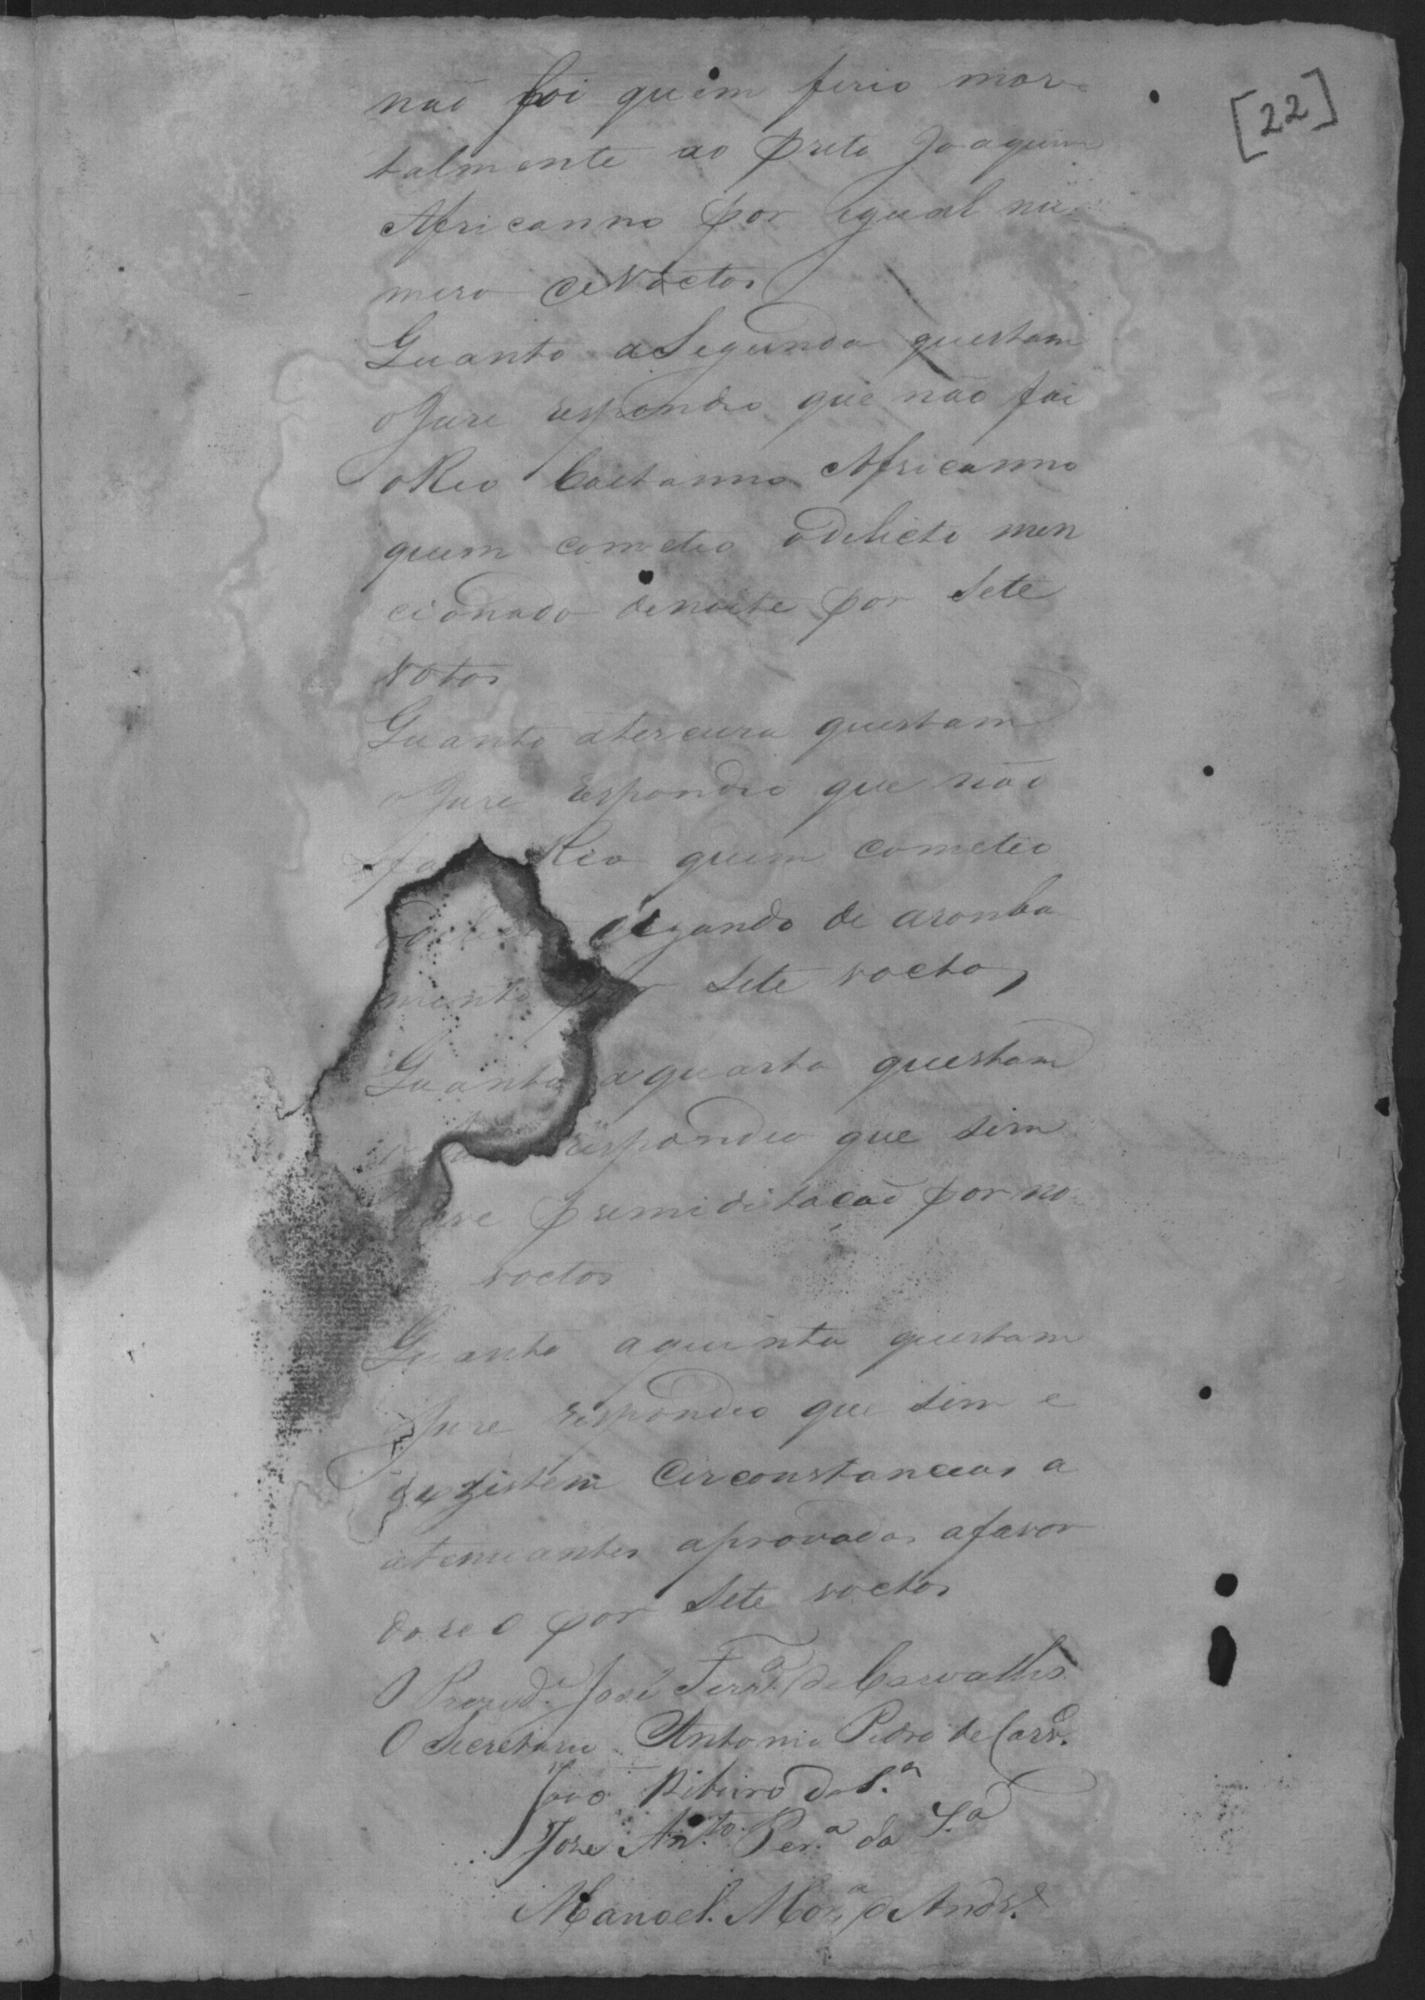 [22]
não foi quem ferio mor
talmente ao preto Joaquim
Africanno por igual nu
mero de voctos
Quanto a Segunda questam
o Jure respondeo que não foi
o Reo Caetanno Africanno
quem cometeo o delicto men
cionado de noite por Sete
votos
Quanto a terceira questam
o Jure respondeo que não
Reo quem cometeo
uzando de aromba
mento por Sete voctos
Quanto a quarta questam
respondeo que sim
ouve premiditacão por no
voctos
Quanto a quinta questam
o Jure respondeo que sim e
exzistem Circonstancias a
atenuantes aprovadas afavor
do reo por Sete voctos
O Prezid.e José Ferr.a de Carvalho
O Secretario Antonio Pedro de Carv.o
João Ribeiro da S.a
Jose An.to Per.a da S.a
Manoel Mor.a de Andr.e